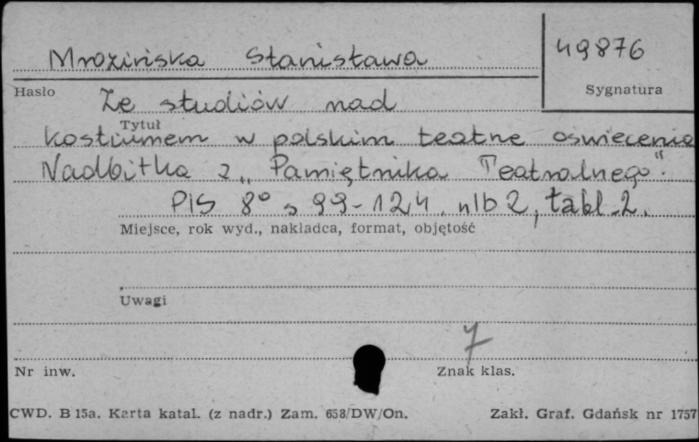 Mrozińska Stanisława
49876
Sygnatura
Hasło
Ze studiów nad
Tytuł
kostiumem w polskim teatrze oświecenia
Nadbitka z „Pamiętnika Teatralnego".
PIS 8° s 99-124, nlb 2, tabl. 2.
Miejsce, rok wyd., nakładca, format, objętość
Uwagi
7
Nr inw.
Znak klas.
CWD. B 15a. Karta katal. (z nadr.) Zam. 658/DW/On.
Zakł. Graf. Gdańsk nr 1757